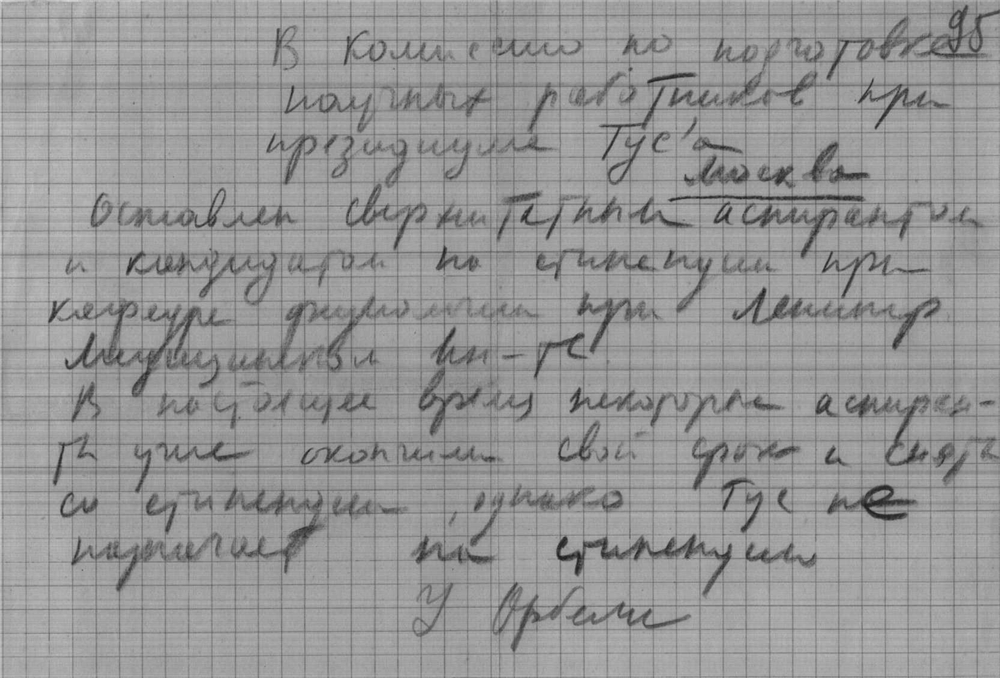 95
В Комиссию по подготовке
научных работников при
президиуме Гус'а
Москва
Оставлен сверхштатным аспирантом
и кандидатом на стипендии при
кафедре физиологии при Ленингр.
Медицинском Ин-те
В настоящее время некоторые аспиран-
ты уже окончили свой срок и сняты
со стипендии, однако Гус не
назначает на стипендию
У Орбели